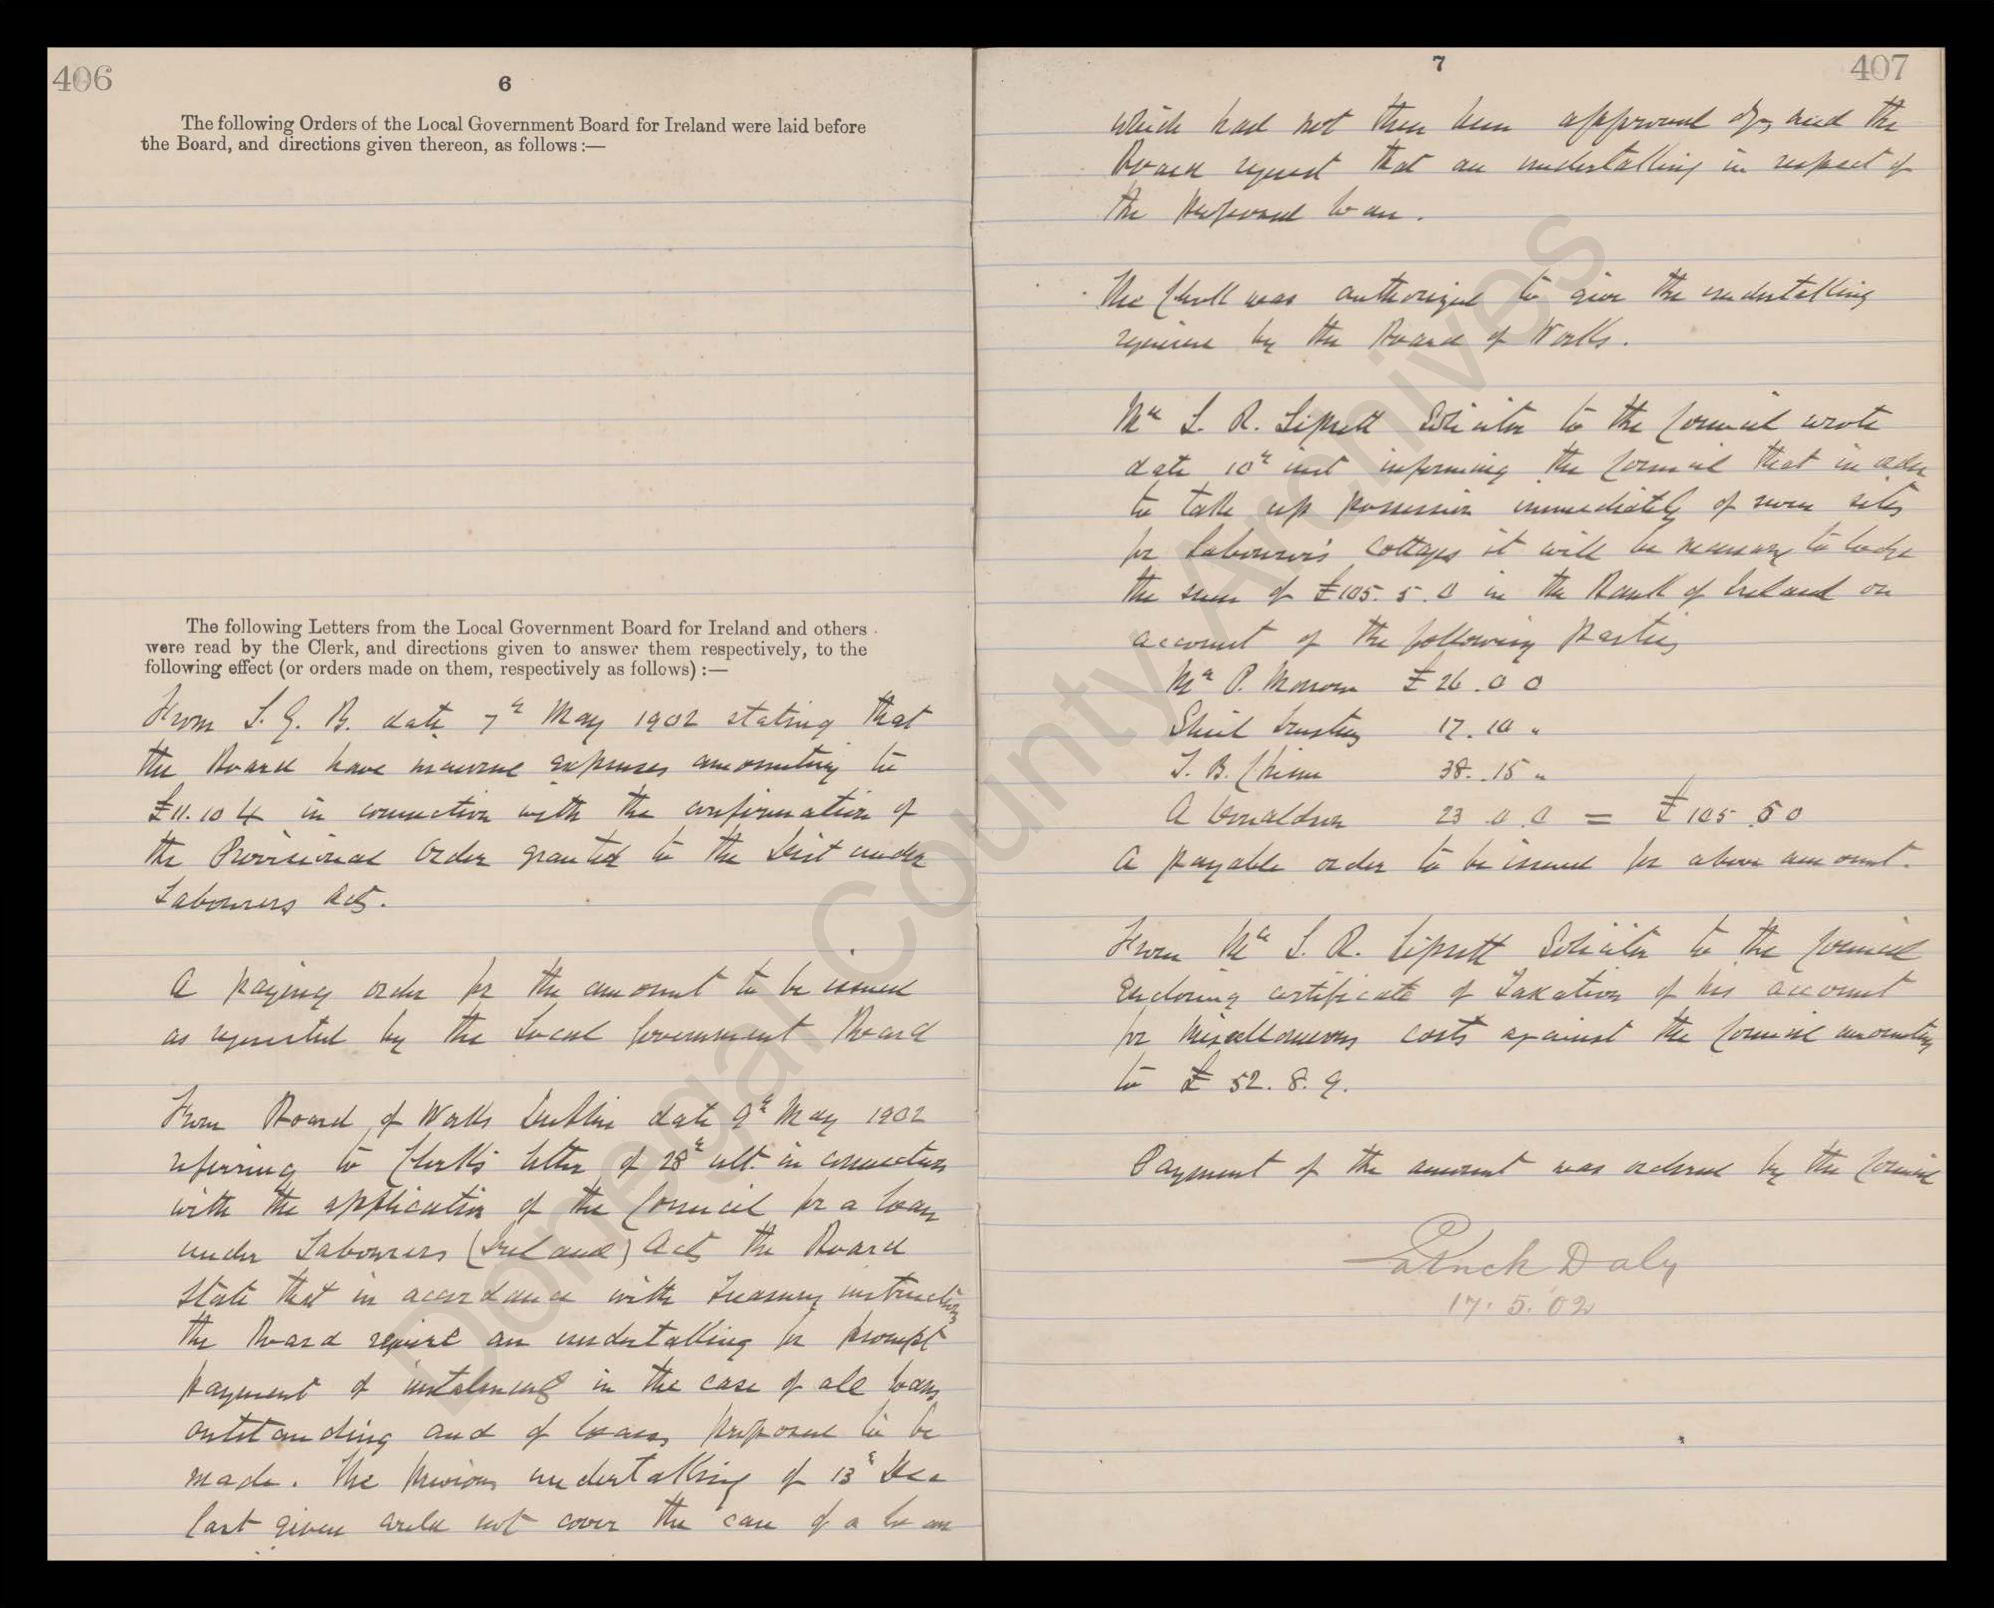 406
6
The following Orders of the Local Government Board for Ireland were laid before
the Board, and directions given thereon, as follows :—
The following Letters from the Local Government Board for Ireland and others
were read by the Clerk, and directions given to answer them respectively, to the
following effect (or orders made on them, respectively as follows) :—
From L. G. B. date 7th May 1902 stating that
the Board have incurred expenses amounting to
£11. 10 4 in connection with the confirmation of
the Provisional Order granted to the Dist under
Labourers Acts.
A paying order for the amount to be issued
as requested by the Local Government Board
From Board of Works Dublin date 9th May 1902
referring to Clerk's letter of 28th ult. in connection
with the application of the Council for a loan
under Labourers (Ireland) Acts the Board
state that in accordance with Treasury instructions
the Board require an undertaking for prompt
payment of instalments in the case of all loans
outstanding and of loans proposed to be
made. The previous undertaking of 13th Dec
last given could not cover the case of a loan
7
407
which had not then been approved of, and the
Board request that an undertaking in respect of
the proposed loan.
The Clerk was authorized to give the undertaking
required by the Board of Works.
Mr L. R. Lipsett Solicitor to the Council wrote
date 10th inst informing the Council that in order
to take up possession immediately of some sites
for Labourer's Cottages it will be necessary to lodge
the sum of £105. 5. 0 in the Bank of Ireland on
account of the following parties
Mr P. Morrow £26. 0 0
Sheil Trustees 17. 10 "
T. B. 38. 15 "
A Donaldson 23. 0. 0 = £105. 5 0
A payable order to be issued for above amount.
From Mr L. R. Lipsett Solicitor to the Council
Enclosing certificate of Taxation of his account
for Miscellaneous costs against the Council amounting
to £52. 8. 9.
Payment of the amount was ordered by the Council
Patrick Daly
17. 5. '02
Donegal County Archives